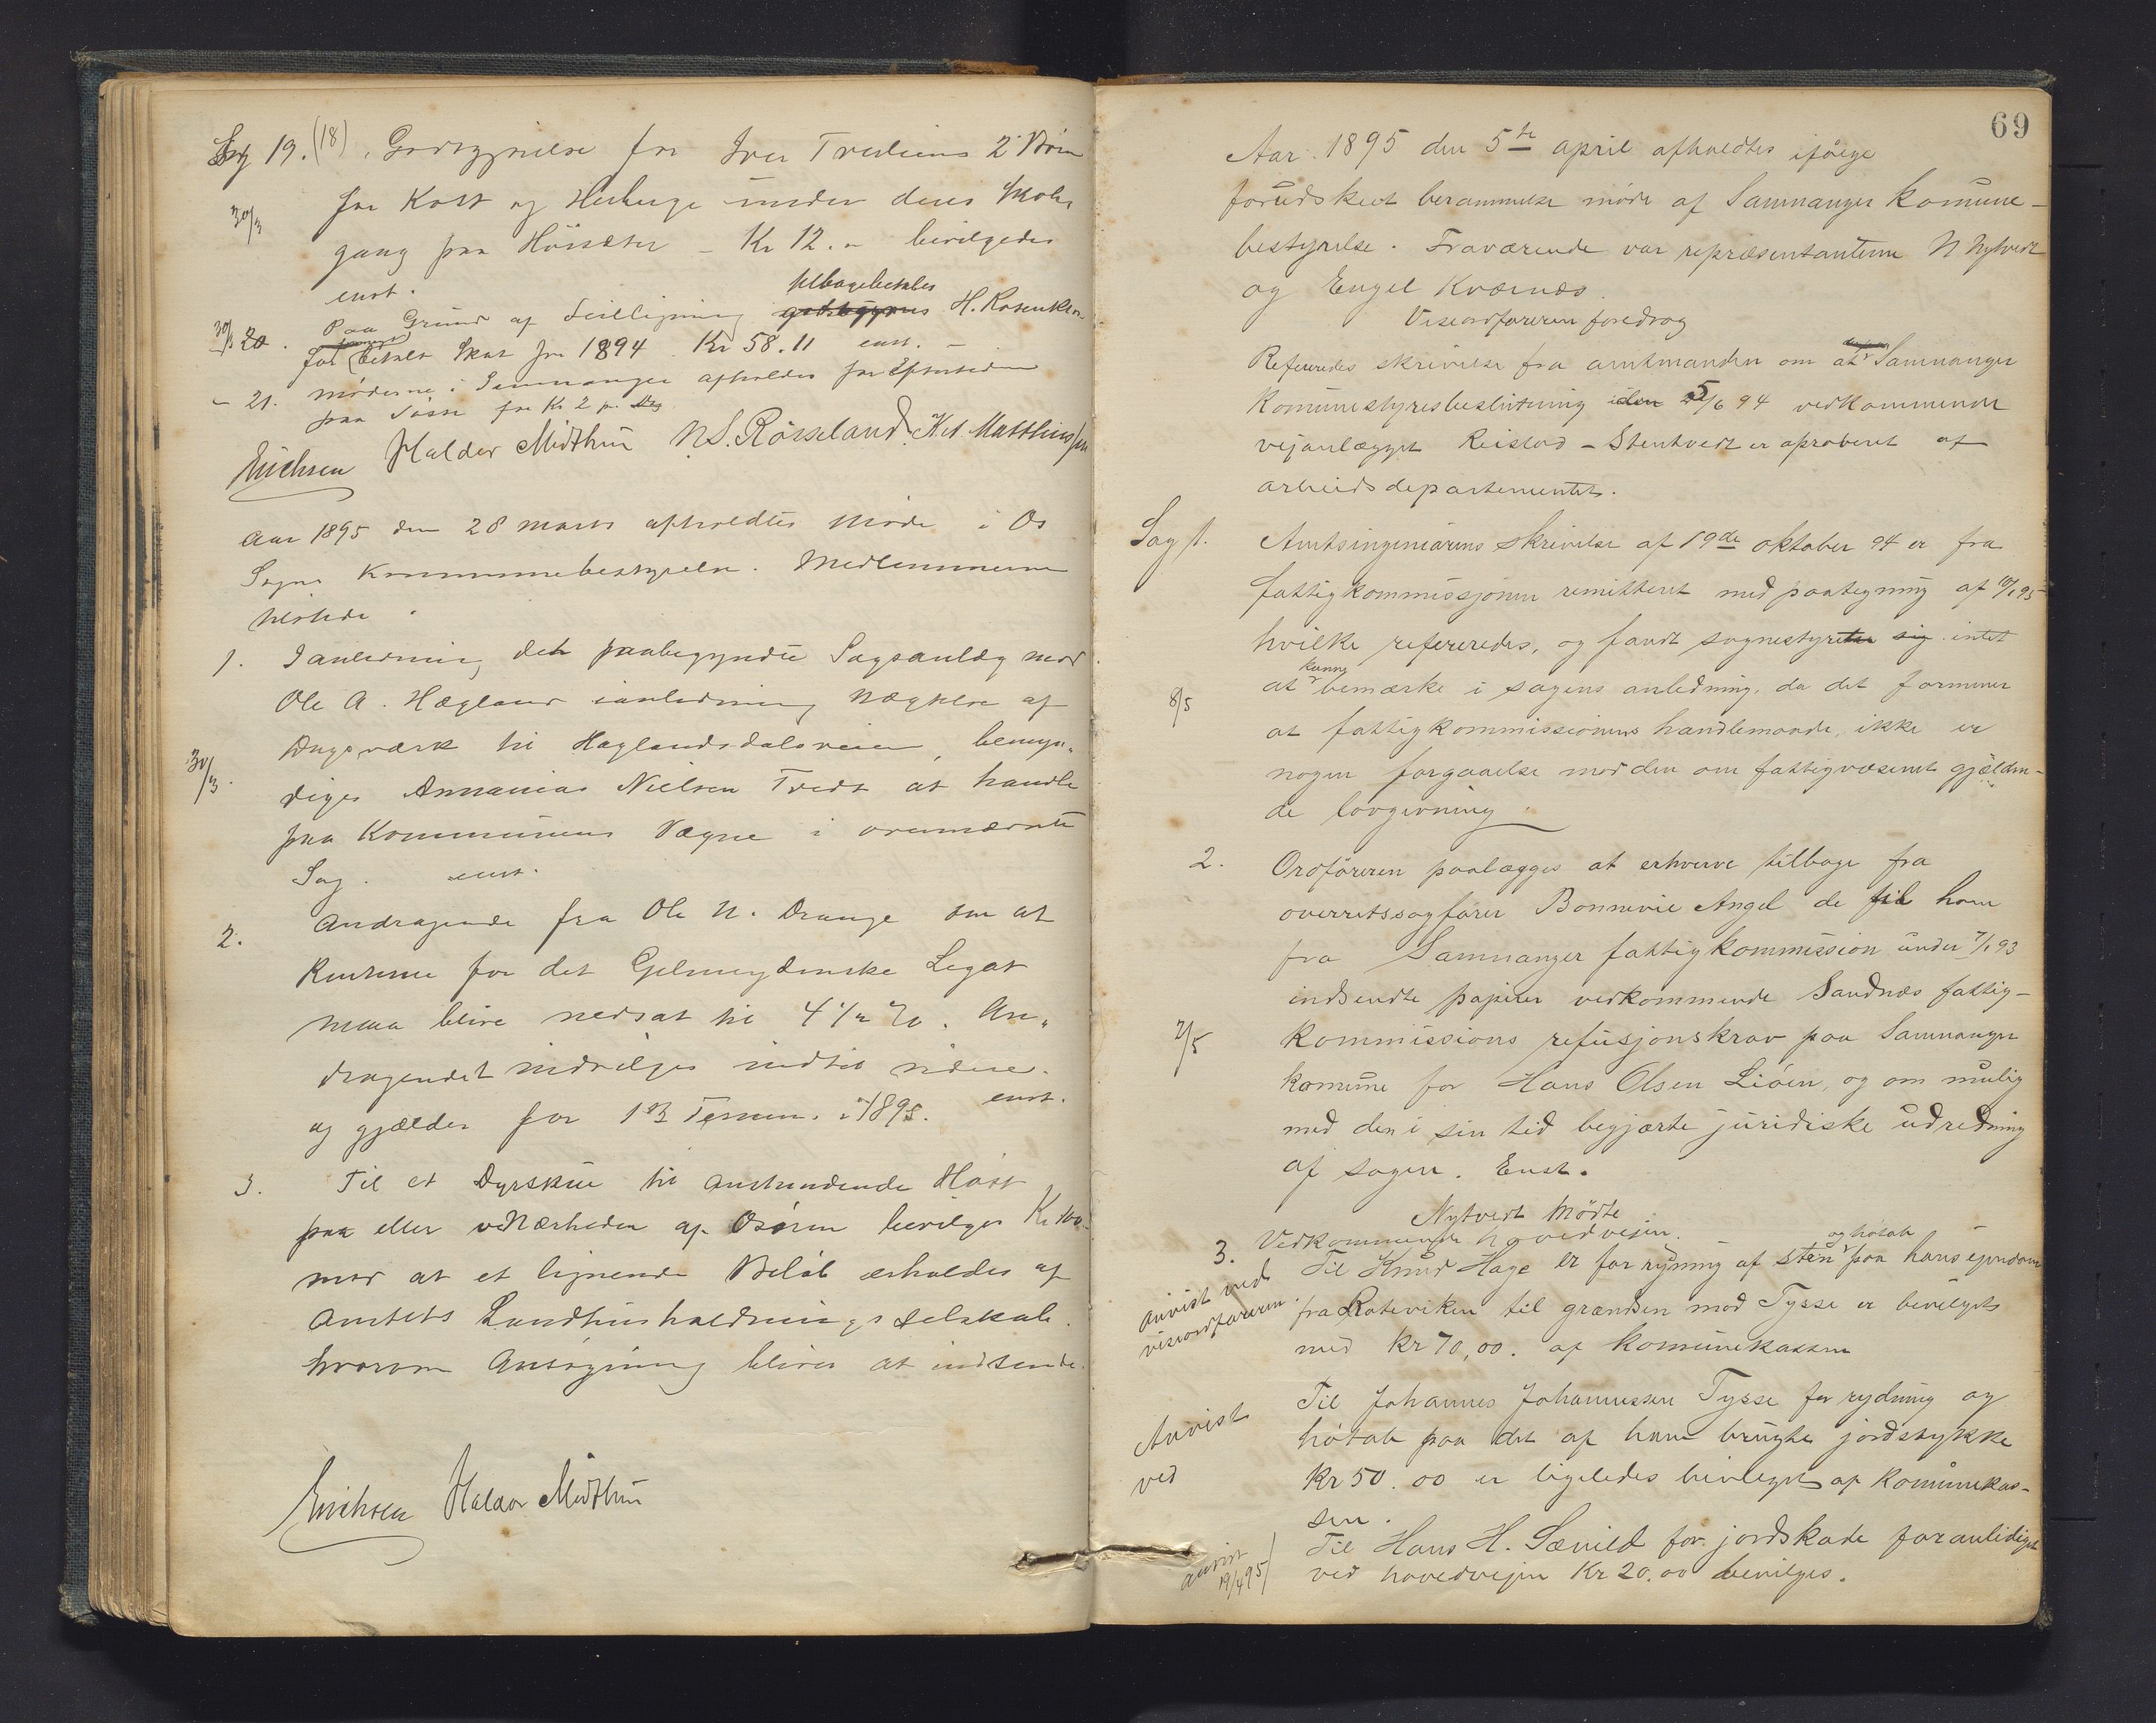 Sag 19. (18). Godtgjørelse for Iver Tveitens 2 Børn
for Kost og Herberge under deres Skole
30/3
gang paa Hørsæter – Kr 12.– bevilgedes
enst.
tilbagebetales
30/3 20. Paa Grund af Feilligning godtgjøres H. Rosenkr
for (formeget) betalt Skat for 1894 Kr 58.11 enst. –
– 21. Møderne i Samnanger afholdes for Eftertiden
paa Tøsse for Kr 2 pr. Dag
Erichsen Haldor Midthun N. S. Røsseland. Kr. Matthiessen
Aar 1895 den 28 marts afholdtes Møde i Os
Sogns Kommunebestyrelse. Medlemmerne
tilstede.
1. I anledning det paabegyndte Sagsanlæg mod
Ole A. Hægland ianledning Nægtelse af
Dagsværk til Hæglandsdalsveien, bemyn-
30/3.
diges Annanias Nielsen Tveit at handle
paa Kommunens Vægne i ovennævnte
Sag. enst.
2. Andragende fra Ole N. Drange om at
Renterne for det Gjelmeydenske Legat
maa blive nedsat til 4 1/2 %. An-
dragendet indvilges indtil videre.
og gjælder for 1ste Termin i 1895. enst.
3. Til et Dyrskue til anstundende Høst
paa eller vNærheden af Osøren bevilges Kr 100
mod at et lignende Beløb erholdes af
Amtets Landhusholdningsselskab.
hvorom Ansøgning bliver at indsende.
Erichsen Haldor Midthun
69
Aar 1895 den 5te april afholdtes ifølge
forudskeet berammelse møde af Samnanger komune-
bestyrelse. Fraværende var repræsentanterne N Nytvedt
og Engel Kvernes.
Viseordføreren foredrog
Refereredes skrivelse fra amtmanden om at Samnanger
Komunestyresbeslutning iden 5/6 94 vedkommende
vejanlægget Reistad – Stentvedt er aproberet af
arbeidsdepartementet.
Sag 1. Amtsingeniørens skrivelse af 19de oktober 94 er fra
fattigkommissjonen remitteret med paategning af 10/1 95
hvilke refereredes, og fandt sognestyret sig intet
kunne
8/5 at bemærke i sagens anledning, da det formener
at fattigkommissionens handlemaade, ikke er
nogen forgaaelse mod den om fattigvæsenet gjælden-
de lovgivning.
2. Ordføreren paalægges at erhverve tilbage fra
overretssagfører Bonnevie Angel de til ham
fra Samnanger fattigkommission under 7/1 93
indsendte papirer vedkommende Sandnæs fattig-
7/5 kommissions refusjonskrav paa Samnanger
komune for Hans Olsen Liøen, og om mulig
med den i sin tid begjærte juridiske udredning
af sagen. Enst.
Nytvedt mødte
3. Vedkommende hovedvejen.
og høtab
Til Knud Hage er for rydning af sten paa hans ejendom
anvist ved
viseordføreren. fra Rateviken til grændsen mod Tysse er bevilgets
med kr 70,00. af komunekassen
Til Johannes Johannessen Tysse for rydning og
Anvist
høtab paa det af ham brugte jordstykke
ved
Kr 50.00 er ligeledes bevilget af Komunekas-
sen.
Til Hans H. Sævild for jordskade foranlediget
anvist
19/4 95 ved hovedvejen Kr 20.00 bevilges.